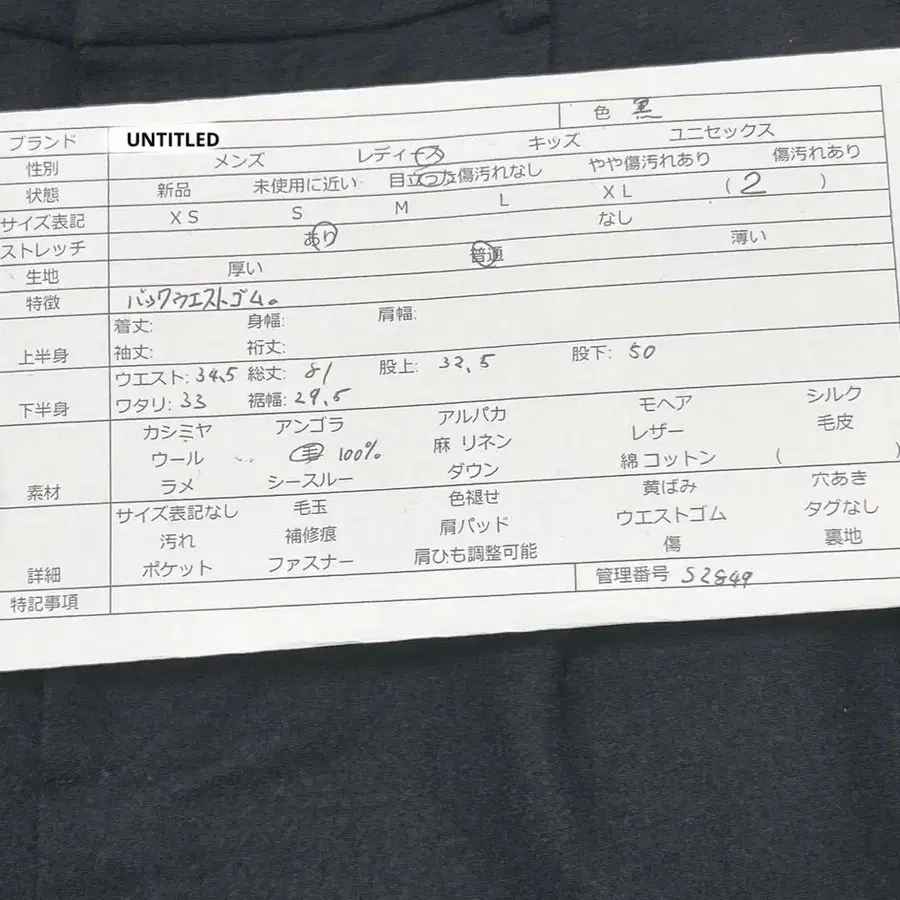 色 黒
ブランド UNTITLED
性別 メンズ レディース キッズ ユニセックス
状態 新品 未使用に近い 目立った傷汚れなし やや傷汚れあり 傷汚れあり
サイズ表記 XS S M L XL ( 2 )
ストレッチ あり なし
生地 厚い 普通 薄い
特徴 バックウエストゴム。
上半身 着丈: 身幅: 肩幅:
袖丈: 裄丈:
下半身 ウエスト: 34.5 総丈: 81 股上: 32.5 股下: 50
ワタリ: 33 裾幅: 29.5
素材 カシミヤ アンゴラ アルパカ モヘア シルク
ウール 毛 100% 麻 リネン レザー 毛皮
ラメ シースルー ダウン 綿 コットン ( )
詳細 サイズ表記なし 毛玉 色褪せ 黄ばみ 穴あき
汚れ 補修痕 肩パッド ウエストゴム タグなし
ポケット ファスナー 肩ひも調整可能 傷 裏地
特記事項 管理番号 S2849